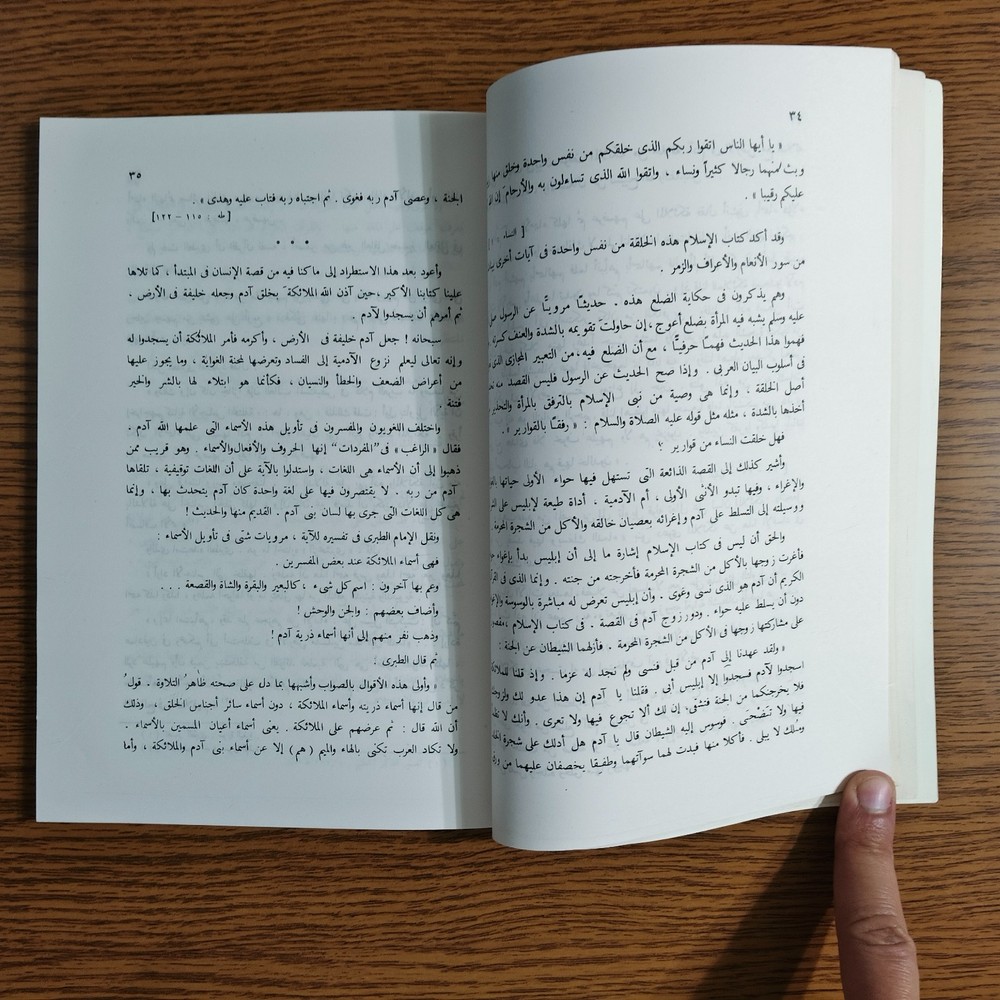 ٣٤
« يا أيها الناس اتقوا ربكم الذى خلقكم من نفس واحدة وخلق منها
وبث منهما رجالا كثيراً ونساء ، واتقوا الله الذى تساءلون به والأرحام إن
عليكم رقيبا » .
[ النساء
وقد أكد كتاب الإسلام هذه الخلقة من نفس واحدة فى آيات أخرى
من سور الأنعام والأعراف والزمر .
وهم يذكرون فى حكاية الضلع هذه . حديثـًا مرويـًّا عن الرسول
عليه وسلم يشبه فيه المرأة بضلع أعوج ، إن حاولتَ تقويمه بالشدة والعنف
فهموا هذا الحديث فهمـًا حرفيـًّا ، مع أن الضلع فيه ، من التعبير المجازى الذى
فى أسلوب البيان العربى . وإذا صح الحديث عن الرسول فليس القصد منه
أصل الخلقة . وإنما هى وصية من نبى الإسلام بالترفق بالمرأة والتحذير
أخذها بالشدة ، مثله مثل قوله عليه الصلاة والسلام : « رفقـًا بالقوارير » .
فهل خلقت النساء من قوارير ؟
وأشير كذلك إلى القصة الذائعة التى تستهل فيها حواء الأولى حياتها
والإغراء ، وفيها تبدو الأنثى الأولى ، أم الآدمية . أداة طيعة لإبليس على
ووسيلته إلى التسلط على آدم وإغرائه بعصيان خالقه والأكل من الشجرة المحرمة
والحق أن ليس فى كتاب الإسلام إشارة ما إلى أن إبليس بدأ بإغواء
فأغرت زوجها بالأكل من الشجرة المحرمة فأخرجته من جنته . وإنما الذى فى
الكريم أن آدم هو الذى نسى وغوى . وأن إبليس تعرض له مباشرة بالوسوسة
دون أن يسلط عليه حواء . ودور زوج آدم فى القصة . فى كتاب الإسلام ،
على مشاركتها زوجها فى الأكل من الشجرة المحرمة . فأزلهما الشيطان عن الجنة :
« ولقد عهدنا إلى آدم من قبل فنسى ولم نجد له عزما . وإذ قلنا للملائكة
اسجدوا لآدم فسجدوا إلا إبليس أبى . فقلنا يا آدم إن هذا عدو لك ولزوجك
فلا يخرجنكما من الجنة فتشقى ، إن لك ألا تجوع فيها ولا تعرى . وأنك لا
فيها ولا تَضْحَى . فوسوس إليه الشيطان قال يا آدم هل أدلك على شجرة
ومُلك لا يبلى . فأكلا منها فبدت لهما سوآتهما وطفقا يخصفان عليهما من
٣٥
الجنة ، وعصى آدم ربه فغوى . ثم اجتباه ربه فتاب عليه وهدى » .
[ طه : ١١٥ – ١٢٢ ]
• • •
وأعود بعد هذا الاستطراد إلى ما كنا فيه من قصة الإنسان فى المبتدأ ، كما تلاها
علينا كتابنا الأكبر ، حين آذن الله الملائكةَ بخلق آدم وجعله خليفة فى الأرض .
ثم أمرهم أن يسجدوا لآدم .
سبحانه ! جعل آدم خليفة فى الأرض ، وأكرمه فأمر الملائكة أن يسجدوا له
وإنه تعالى ليعلم نزوع الآدمية إلى الفساد وتعرضها لمحنة الغواية ، وما يجوز عليها
من أعراض الضعف والخطأ والنسيان ، فكأنما هو ابتلاء لها بالشر والخير
فتنة .
واختلف اللغويون والمفسرون فى تأويل هذه الأسماء التى علمها الله آدم .
فقال « الراغب » فى “المفردات” إنها الحروف والأفعال والأسماء . وهو قريب ممن
ذهبوا إلى أن الأسماء هى اللغات ، واستدلوا بالآية على أن اللغات توقيفية ، تلقاها
آدم من ربه . لا يقتصرون فيها على لغة واحدة كان آدم يتحدث بها ، وإنما
هى كل اللغات التى جرى بها لسان بنى آدم . القديم منها والحديث !
ونقل الإمام الطبرى فى تفسيره للآية ، مرويات شتى فى تأويل الأسماء :
فهى أسماء الملائكة عند بعض المفسرين .
وعم بها آخرون : اسم كل شىء ، كالبعير والبقرة والشاة والقصعة . . .
وأضاف بعضهم : والجن والوحش !
وذهب نفر منهم إلى أنها أسماء ذرية آدم !
ثم قال الطبرى :
« وأولى هذه الأقوال بالصواب وأشبهها بما دل على صحته ظاهرُ التلاوة . قولُ
من قال إنها أسماء ذريته وأسماء الملائكة ، دون أسماء سائر أجناس الخلق ، وذلك
أن الله قال : ثم عرضهم على الملائكة . يعنى أسماء أعيان المسمين بالأسماء .
ولا تكاد العرب تكنى بالهاء والميم (هم) إلا عن أسماء بنى آدم والملائكة ، وأما